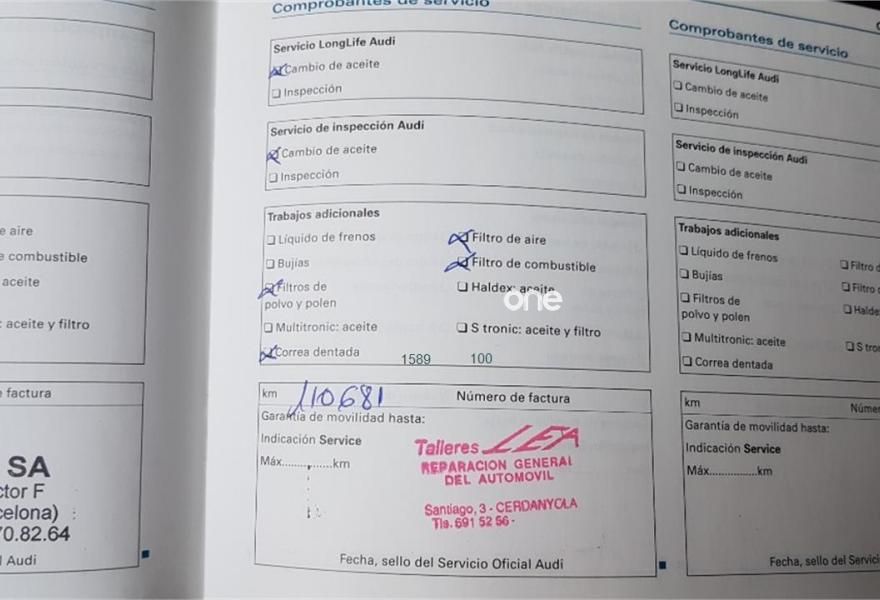 e aire
e combustible
aceite
: aceite y filtro
e factura
SA
ctor F
celona)
70.82.64
l Audi
Comprobantes de servicio
Servicio LongLife Audi
Cambio de aceite
Inspección
Servicio de inspección Audi
Cambio de aceite
Inspección
Trabajos adicionales
Líquido de frenos
Filtro de aire
Bujías
Filtro de combustible
Filtros de
polvo y polen
Haldex: aceite
one
Multitronic: aceite
S tronic: aceite y filtro
Correa dentada
1589 100
km 110681 Número de factura
Garantía de movilidad hasta:
Indicación Service
Máx...............km
Talleres LEA
REPARACION GENERAL
DEL AUTOMOVIL
Santiago, 3 - CERDANYOLA
Tls. 691 52 56 -
Fecha, sello del Servicio Oficial Audi
Comprobantes de servicio
Servicio LongLife Audi
Cambio de aceite
Inspección
Servicio de inspección Audi
Cambio de aceite
Inspección
Trabajos adicionales
Líquido de frenos
Filtro d
Bujías
Filtro
Filtros de
polvo y polen
Halde
Multitronic: aceite
S tron
Correa dentada
km Númer
Garantía de movilidad hasta:
Indicación Service
Máx...............km
Fecha, sello del Servici